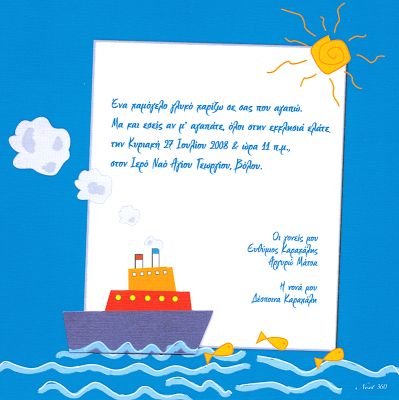 Ένα χαμόγελο γλυκό χαρίζω σε σας που αγαπώ.
Μα και εσείς αν μ' αγαπάτε, όλοι στην εκκλησιά ελάτε
την Κυριακή 27 Ιουλίου 2008 & ώρα 11 π.μ.,
στον Ιερό Ναό Αγίου Γεωργίου, Βόλου.
Οι γονείς μου
Ευθύμιος Καραχάλης
Αργυρώ Μάτσα
Η νονά μου
Δέσποινα Καραχάλη
Nest 360